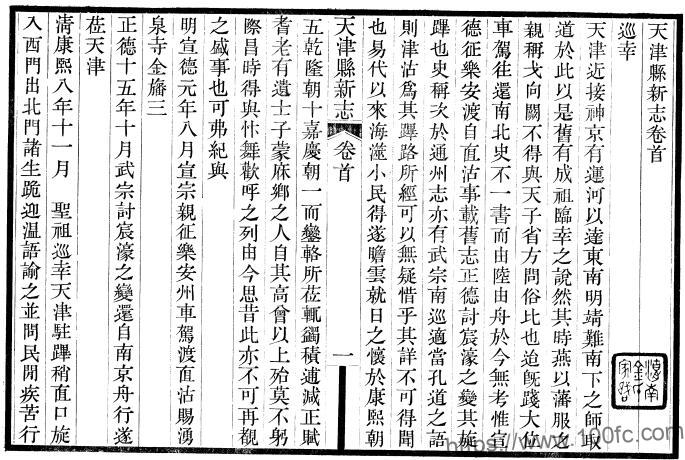 天津縣新志卷首
巡幸
天津近接神京有運河以達東南明靖難南下之師取
道於此以是舊有成祖臨幸之說然其時燕以藩服之
親稱戈向闕不得與天子省方問俗比也迨旣踐大位
車駕往還南北史不一書而由陸由舟於今無考惟宣
德征樂安渡自直沽事載舊志正德討宸濠之變其旋
蹕也史稱次於通州志亦有武宗南巡適當孔道之語
則津沽爲其蹕路所經可以無疑惜乎其詳不可得聞
也易代以來海澨小民得遂瞻雲就日之懷於康熙朝
天津縣新志 卷首 一
五乾隆朝十嘉慶朝一而鑾輅所莅輒蠲積逋減正賦
耆老有遺士子蒙庥鄉之人自其高曾以上殆莫不躬
際昌時得與忭舞歡呼之列由今思昔此亦不可再覩
之盛事也可弗紀與
明宣德元年八月宣宗親征樂安州車駕渡直沽賜湧
泉寺金旛三
正德十五年十月武宗討宸濠之變還自南京舟行遂
莅天津
淸康熙八年十一月 聖祖巡幸天津駐蹕稍直口旋
入西門出北門諸生跪迎溫語諭之並問民閒疾苦行
https://www.100fc.com